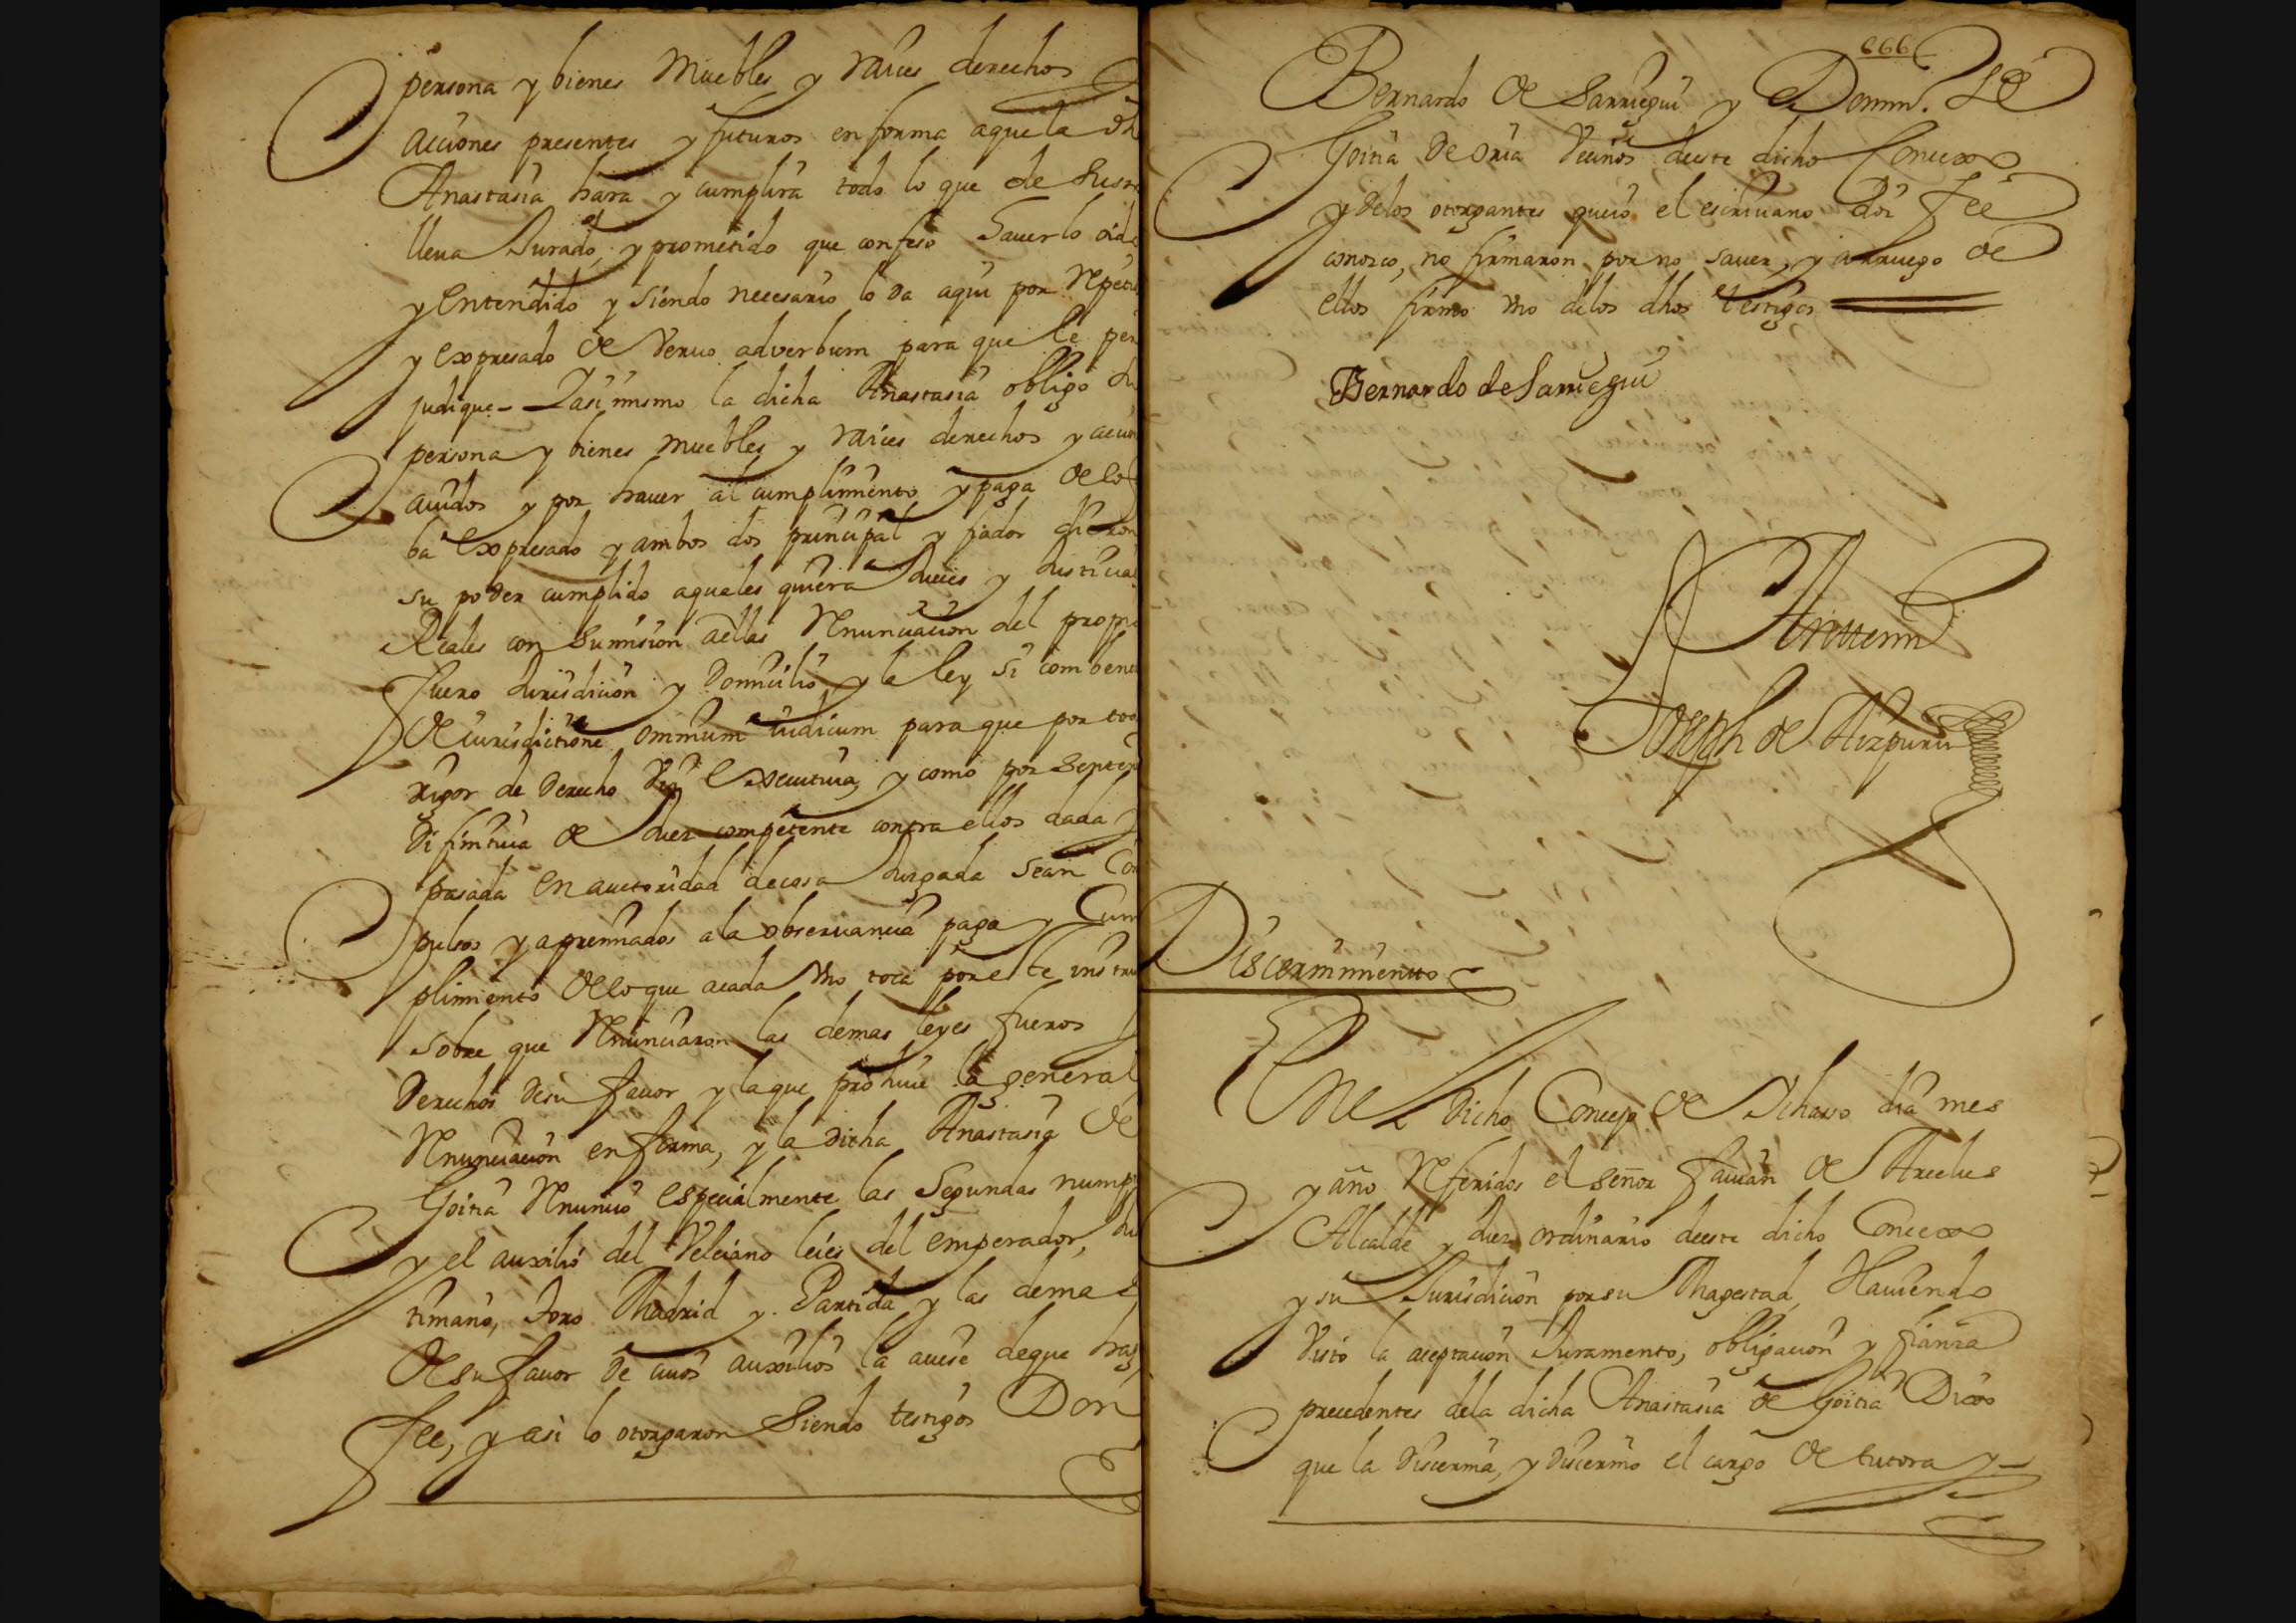 persona y bienes muebles y raices derechos
acciones presentes y futuros en forma aque la dh
Anastasia hara y cumplira todo lo que de suso
lleua Jurado, y prometido que confeso Sauerlo oido
y Entendido y siendo necesario lo da aqui por Repeti
y expresado de Veruo adverbum para que le per
judique – Y asi mismo la dicha Anastasia obligo su
persona y bienes muebles y raices derechos y accion
auidos y por hauer al cumplimiento y paga de lo
ba expresado y ambos dos principal y fiador dieron
su poder cumplido aquales quiera Jueces y Justicias
Reales con Sumision aellas Renunciacion del propio
fuero Jurisdicion y Domicilio y la ley si combene
de iurisdictione omnium iudicum para que por todo
rigor de Derecho Via Executiua, y como por Senten
Difinitiua de Juez competente contra ellos dada y
pasada En auctoridad decosa Juzgada sean Com
pulsos y apremiados ala obseruancia paga y Cum
plimiento de lo que acada Vno toca por este instru
sobre que Renunciaron las demas leyes fueros y
Derechos desu fauor y la que prohiue la general
Renunciacion en forma, y la dicha Anastasia de
Goitia Renuncio especialmente las Segundas nump
y el auxilio del Veleiano leies del emperador, Jus
timano, Toro Madrid y Partida y las demas
de su fauor de cuios auxilios la auise deque hago
fee, y asi lo otorgaron Siendo testigos Don
666
Bernardo de Sarruegui y Domin. de
Goitia de oria Vecinos deeste dicho Concexo
y delos otorgantes queio el escriuano doi fee
conozco, no firmaron por no sauer, y arruego de
ellos firmo Vno delos dhos testigos
Bernardo de Sarruegui
Antemi
Joseph de Aizpuru
Discernimiento
En el dicho Concejo de Ichasso dia mes
y año Referidos el señor Fauian de Arecelus
Alcalde y Juez ordinario deeste dicho Concexo
y su Jurisdicion por su Magestad, Hauiendo
Visto la aceptacion Juramento, obligacion y fianza
precedentes dela dicha Anastasia de Goitia Dixo
que la Discernia, y Discernio el cargo de tutora y